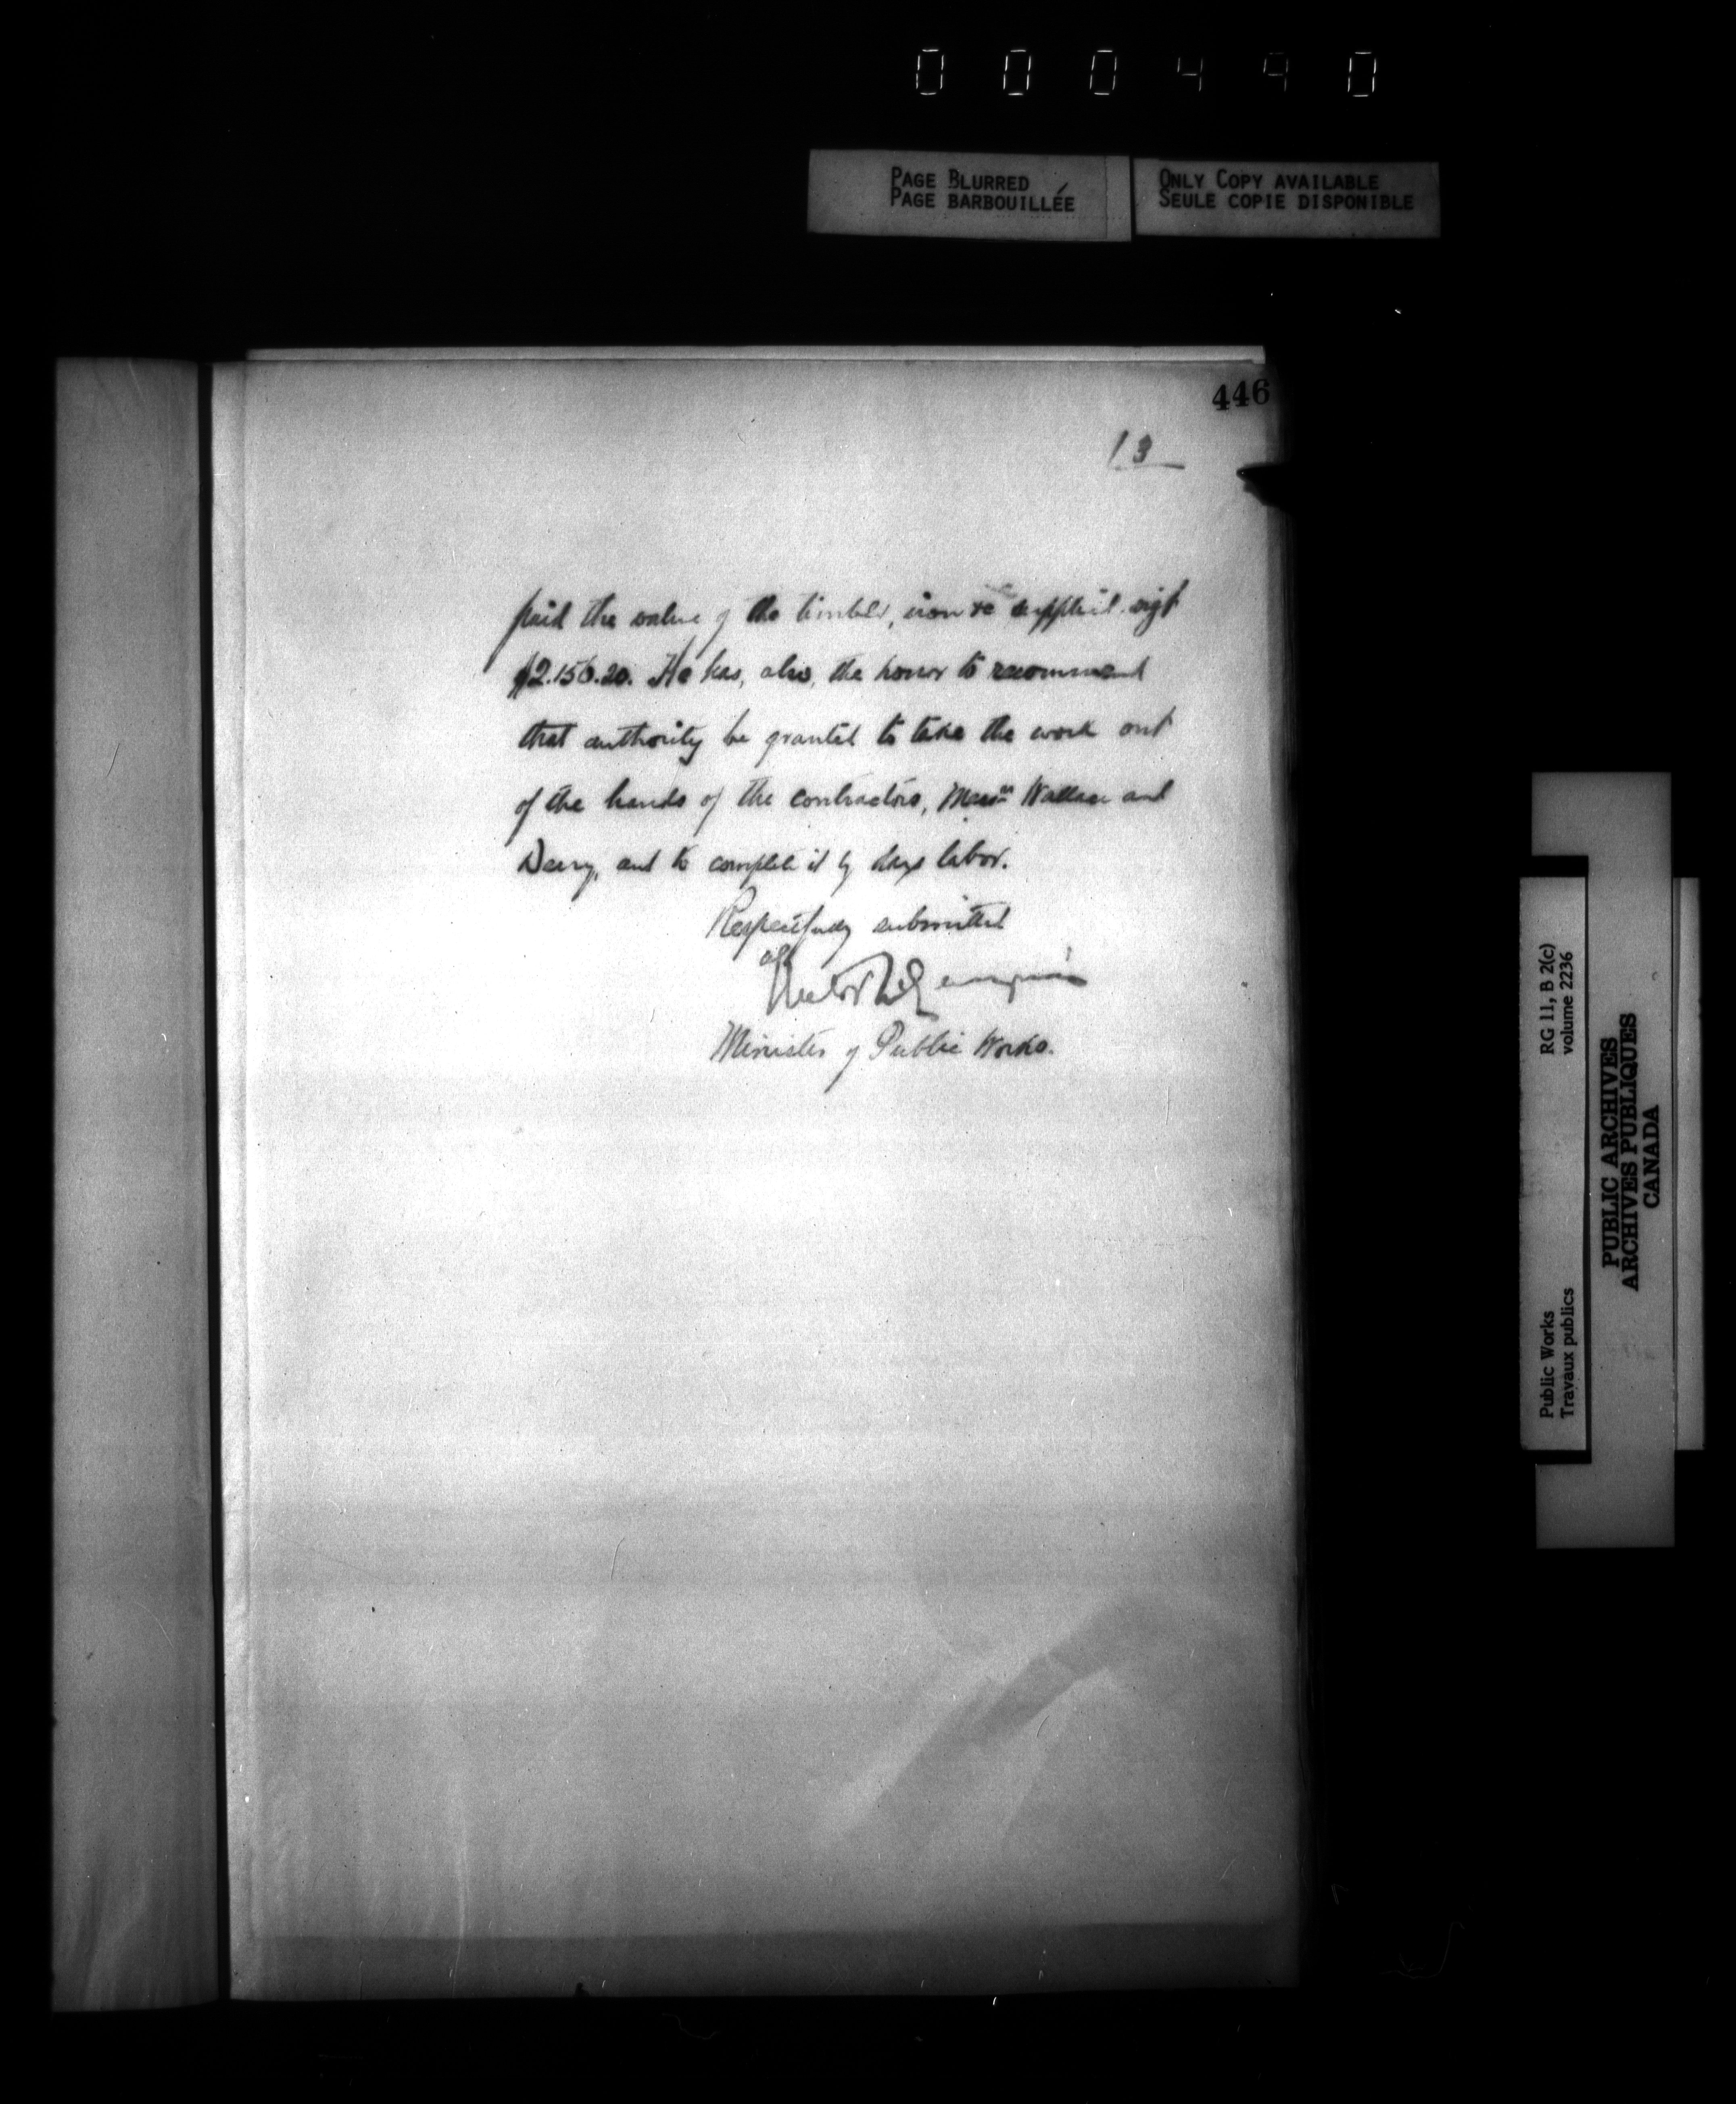 000440
PAGE BLURRED
PAGE BARBOUILLÉE
ONLY COPY AVAILABLE
SEULE COPIE DISPONIBLE
446
13
paid the value of the timber, iron &c supplied. vizt
$2.150.20. He has, also, the honor to recommend
that authority be granted to take the work out
of the hands of the contractors, Messrs Wallace and
and to complete it by days labor.
Respectfully submitted
Hector L. Langevin
Minister of Public Works.
RG 11, B 2(c)
volume 2236
Public Works
Travaux publics
PUBLIC ARCHIVES
ARCHIVES PUBLIQUES
CANADA